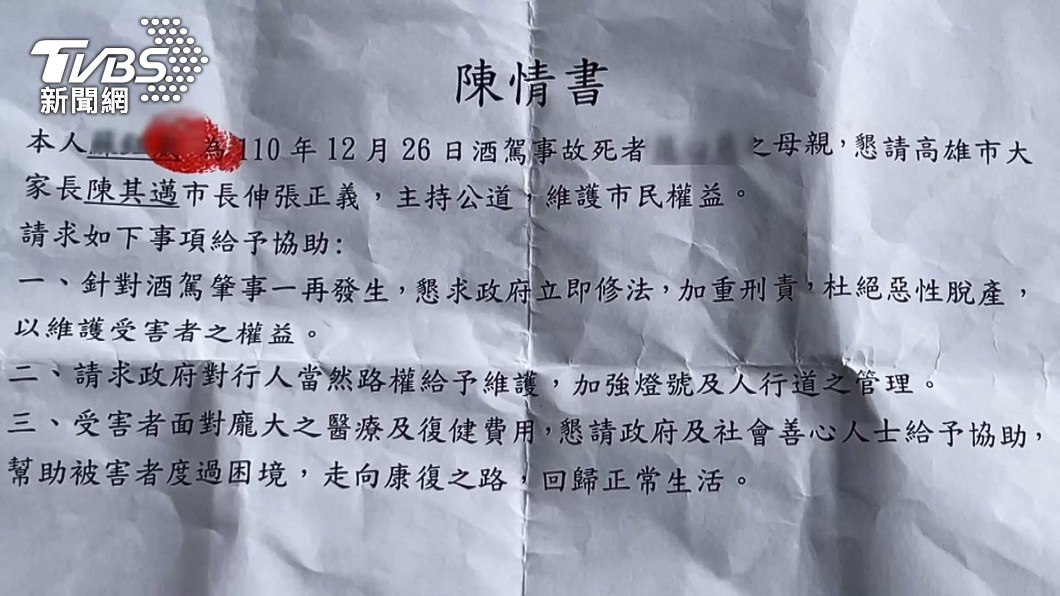 TVBS
新聞網
陳情書
本人 為110年12月26日酒駕事故死者 之母親，懇請高雄市大
家長陳其邁市長伸張正義，主持公道，維護市民權益。
請求如下事項給予協助：
一、針對酒駕肇事一再發生，懇求政府立即修法，加重刑責，杜絕惡性脫產，
以維護受害者之權益。
二、請求政府對行人當然路權給予維護，加強燈號及人行道之管理。
三、受害者面對龐大之醫療及復健費用，懇請政府及社會善心人士給予協助，
幫助被害者度過困境，走向康復之路，回歸正常生活。